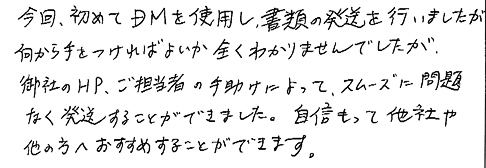 今回、初めてDMを使用し、書類の発送を行いましたが
何から手をつければよいか全くわかりませんでしたが、
御社のHP、ご担当者の手助けによって、スムーズに問題
なく発送することができました。自信もって他社や
他の方へおすすめすることができます。